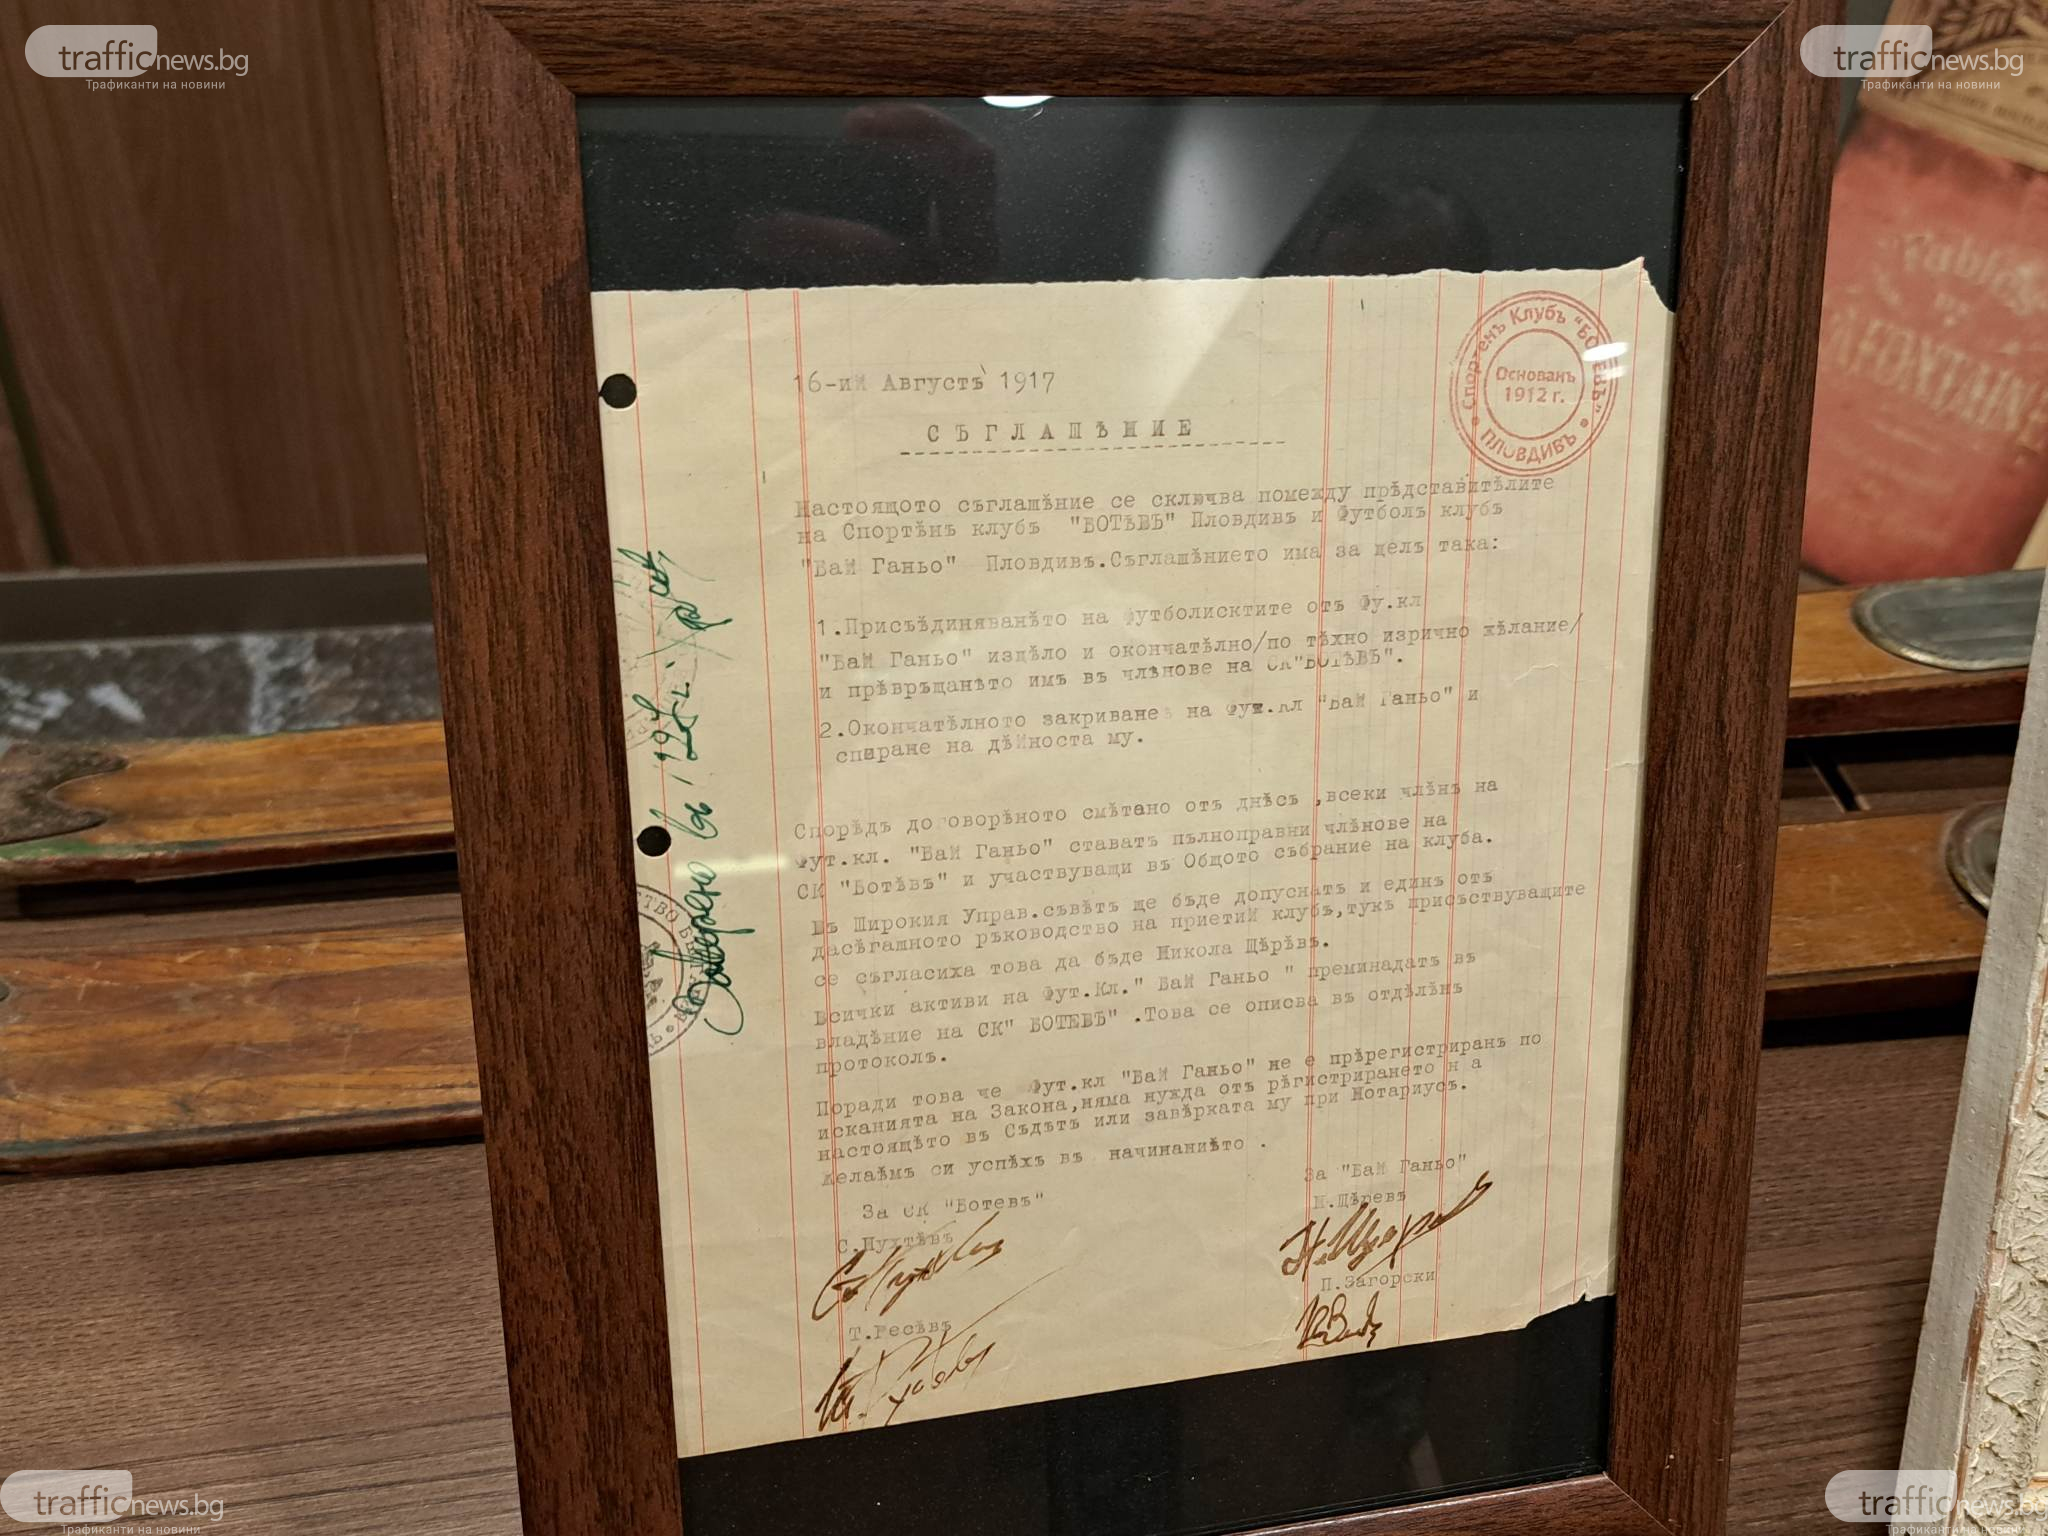 trafficnews.bg
Трафиканти на новини
trafficnews.bg
Трафиканти на новини
Спортенъ Клубъ "БОТЕВЪ"
Основанъ
1912 г.
ПЛОВДИВЪ
16-ий Августъ 1917
СЪГЛАШѢНИЕ
Настоящото съглашѣние се сключва помежду прѣдставитѣлите
на Спортѣнъ клубъ "БОТѢВЪ" Пловдивъ и Футболъ клубъ
"Бай Ганьо" Пловдивъ.Съглашѣнието има за целъ така:
1.Присъѣдиняванѣто на футболисктите отъ Фу.кл
"Бай Ганьо" изцѣло и окончатѣлно/по тѣхно изрично жѣлание/
и прѣвръщанѣто имъ въ члѣнове на СК"БОТѢВЪ".
2.Окончатѣлното закриване на Фут.кл "Бай Ганьо" и
спиране на дѣйноста му.
Спорѣдъ договорѣното смѣтано отъ днѣсъ ,всеки члѣнъ на
Фут.кл. "Бай Ганьо" ставатъ пълноправни члѣнове на
СК "Ботѣвъ" и участвуващи въ Общото събрание на клуба.
Въ Широкия Управ.съвѣтъ ще бъде допуснатъ и единъ отъ
дасѣгашното ръководство на приетий клубъ,тукъ присъствуващите
се съгласиха това да бъде Никола Щѣрѣвъ.
Всички активи на Фут.Кл." Бай Ганьо " преминадатъ въ
владѣние на СК" БОТЕВЪ" .Това се описва въ отдѣлѣнъ
протоколъ.
Поради това че Фут.кл "Бай Ганьо" не е прѣрегистриранъ по
исканията на Закона,няма нужда отъ рѣгистрирането н а
настоящѣто въ Съдѣтъ или завѣрката му при Нотариусъ.
Желаѣмъ си успѣхъ въ начинаниѣто .
За СК "Ботевъ"
За "Бай Ганьо"
Н.Щѣревъ
С.Пухтѣвъ
П.Загорски
Т.Ресѣвъ
Заверено въ
trafficnews.bg
Трафиканти на новини
trafficnews.bg
Трафиканти на новини